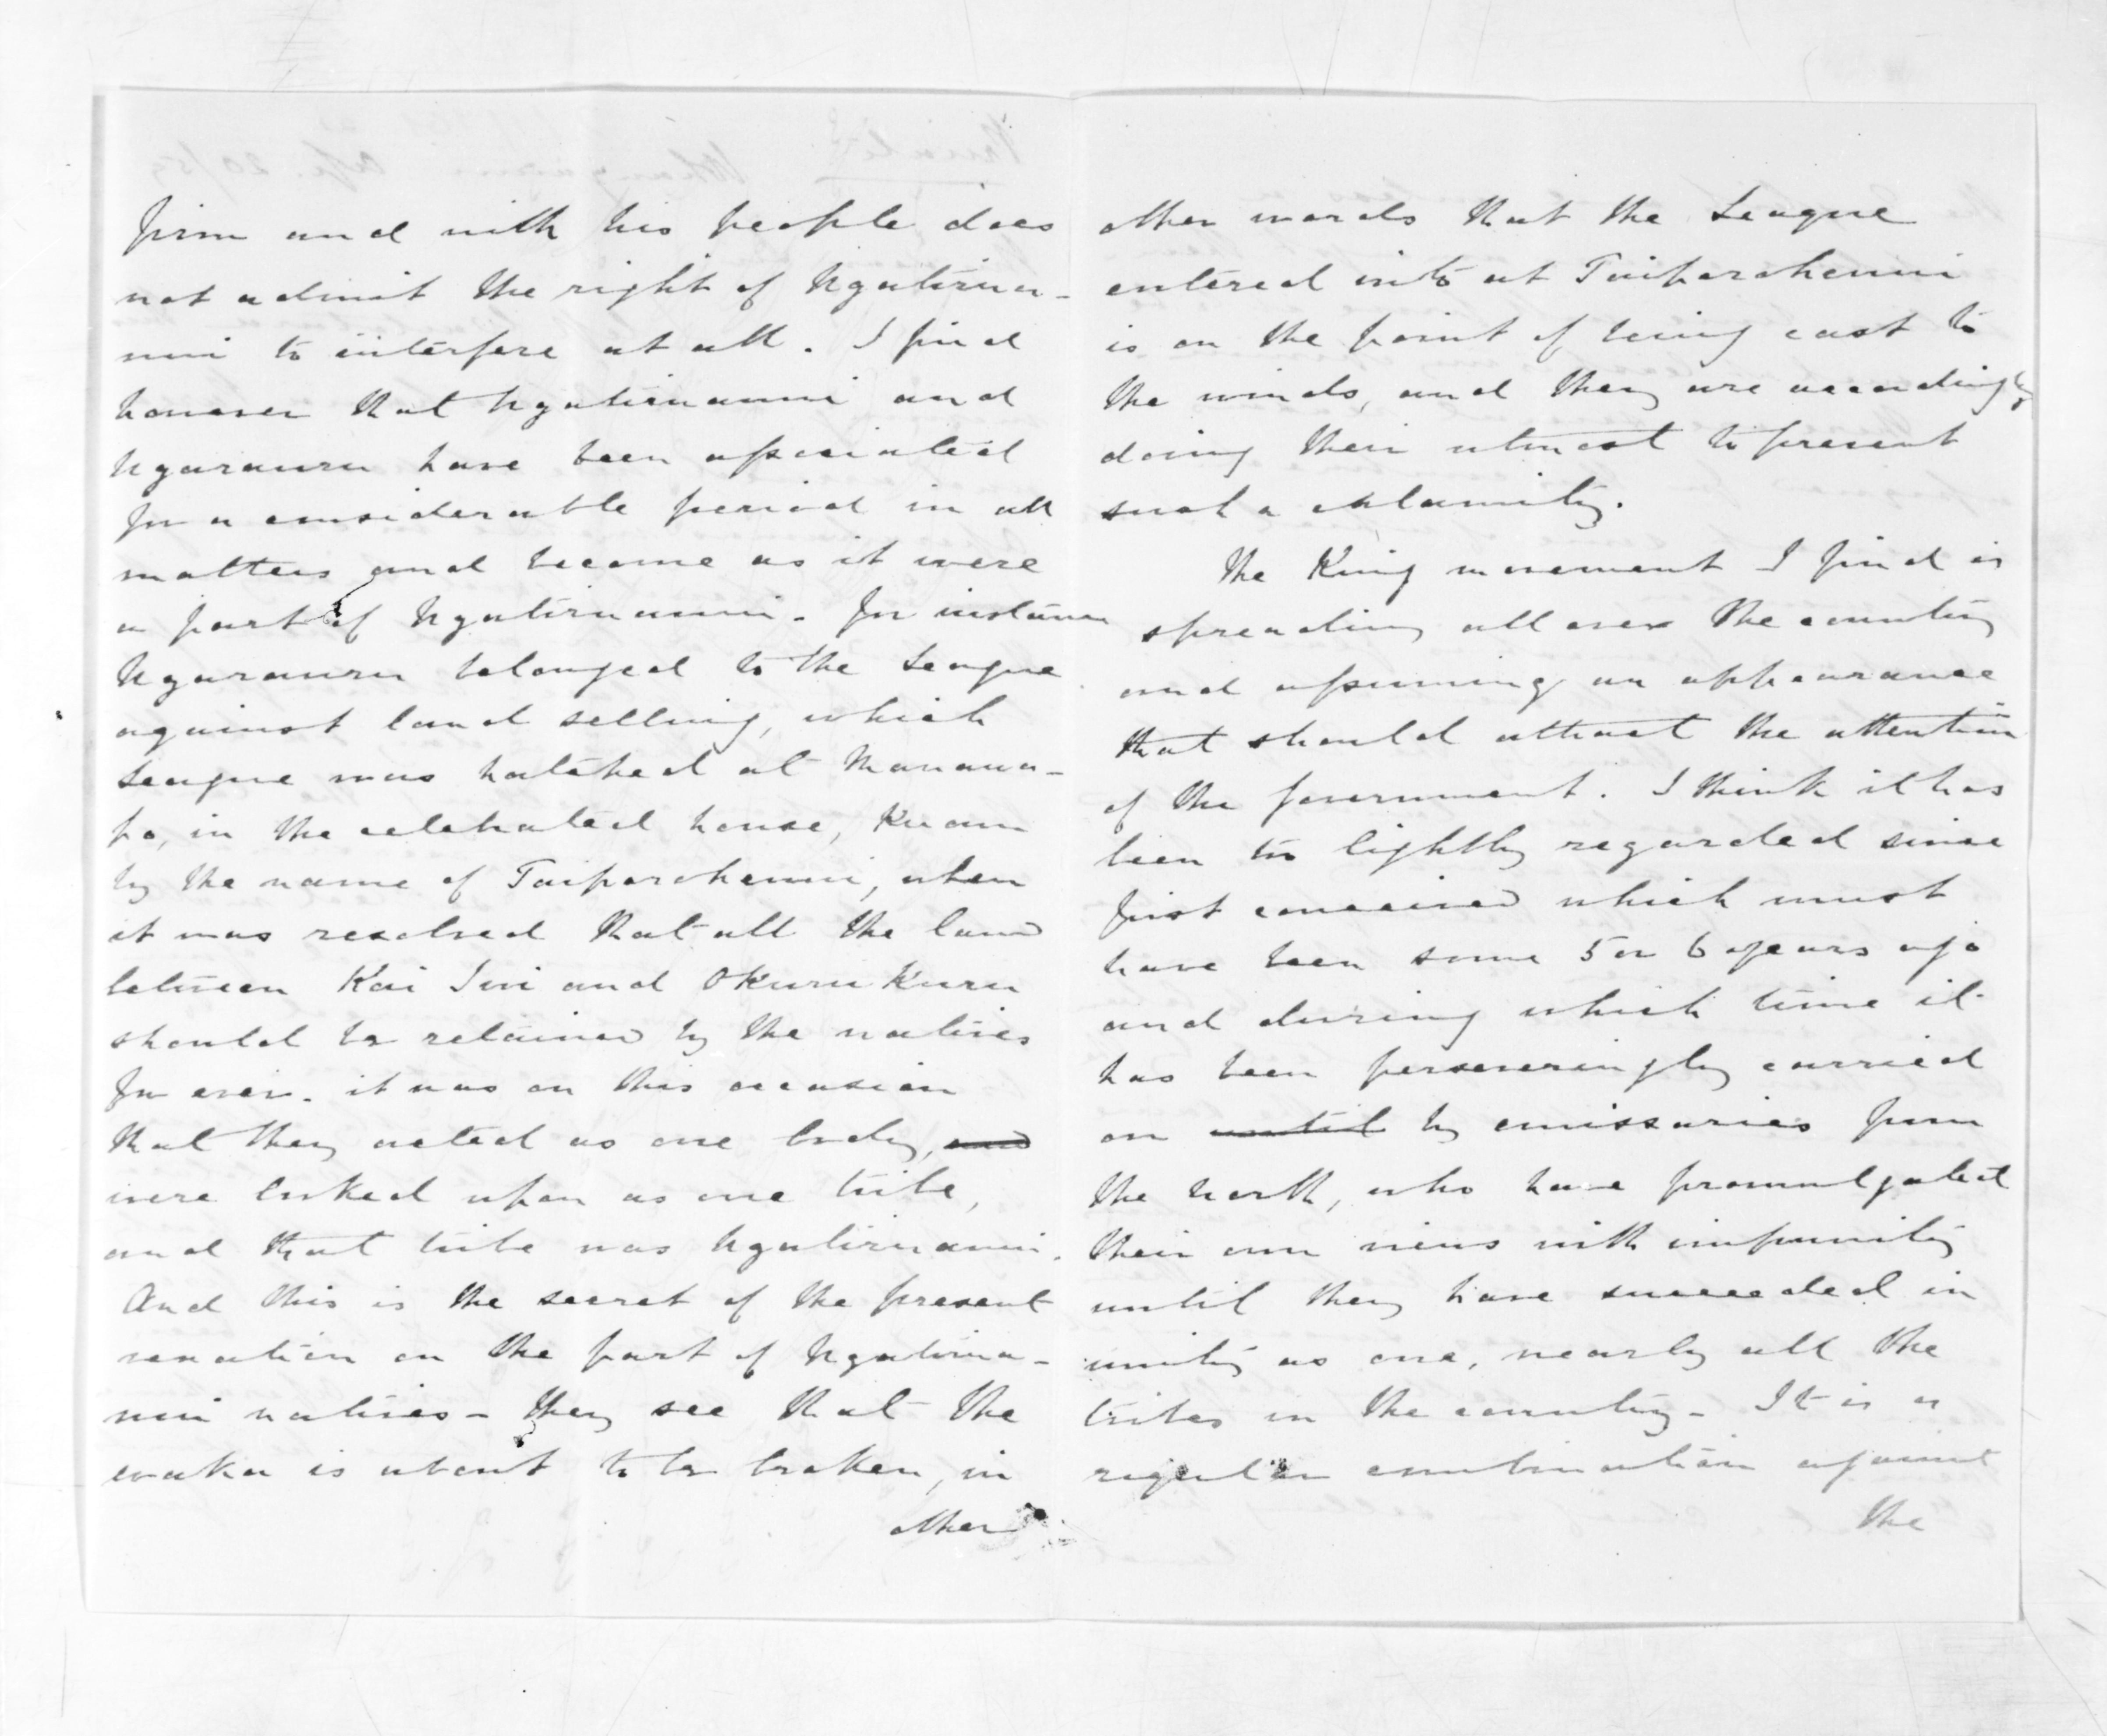 firm and with his people does
not admit the right of Ngatirua-
nui to interfere at all. I find
however that Ngatiruanui and
Ngarauru have been associated
for a considerable period in all
matters and become as it were
a part of Ngatiruanui. For instance
Ngarauru belonged to the League
against land selling, which
League was hatched at Manawa-
po, in the celebrated house, known
by the name of Taiporohenui, when
it was resolved that all the land
between Kai Iwi and Okurukuru
should be retained by the natives
for ever. it was on this occasion
that they acted as one body, and
were looked upon as one tribe,
and that tribe was Ngatiruanui.
And this is the secret of the present
vexation on the part of Ngatirua-
nui natives - they see that the
waka is about to be broken, in
other
other words that the League
entered into at Taiporohenui
is on the point of being cast to
the winds, and they are accordingly
doing their utmost to prevent
such a calamity.
The King movement I find is
spreading all over the country
and assuming an appearance
that should attract the attention
of the Government. I think it has
been too lightly regarded since
first conceived which must
have been some 5 or 6 years ago
and during which time it
has been perseveringly carried
on until by emissaries from
the North, who have promulgated
their own views with impunity
until they have succeeded in
uniting as one, nearly all the
tribes in the country - It is a
regular combination against
the